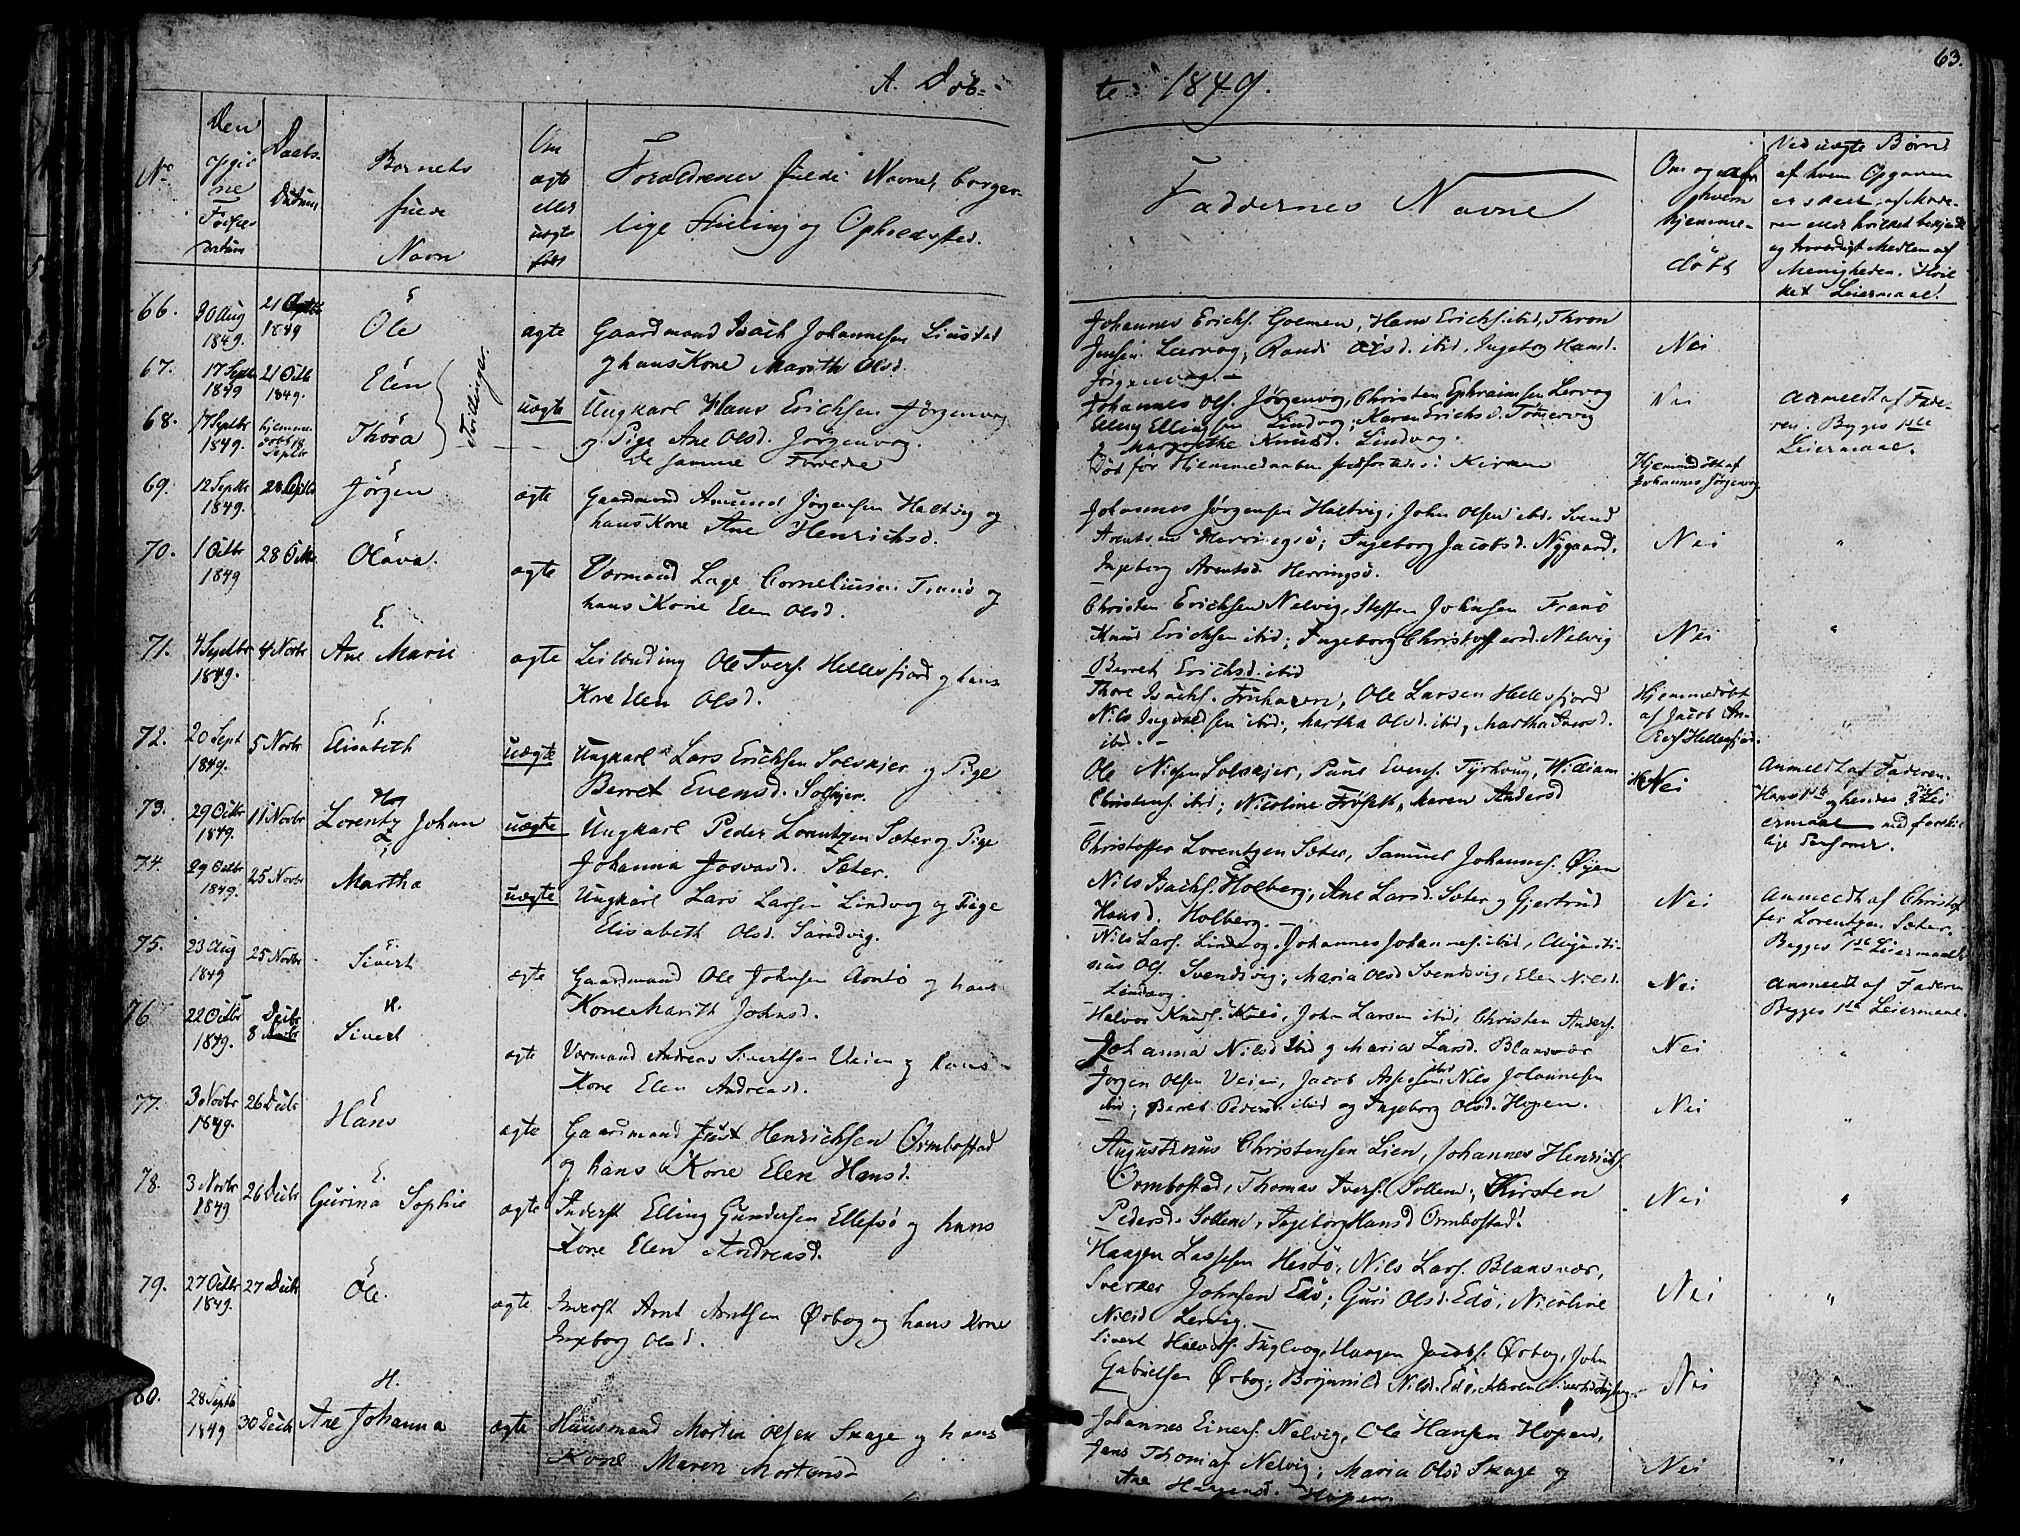 63.
A. Döb-
te 1849.
No
Den
Fødsels
datum
Daabs-
Datum
Barnets
fulde
Navn
Om
ægte
eller
uægte
født
Forældrenes fulde Navne, borger-
lige Stilling og Opholdssted.
Faddernes Navne
Om og af
hvem
hjemme-
döbt
Ved uægte Børn
af hvem Opgaven
er skeet, af Mode-
ren eller hvilket bekjendt
og troværdigt Medlem af
Menigheden. Hvil-
ket Leiermaal?
66.
30 Aug
1849.
21
1849
Ole
ægte
Gaardmand Isach Johannesen
og hans Kone Marith Olsd.
Johannes Erichs. Goemen, Hans Erichs. ibid, Thron
Jensen Leervog; Randi Olsd. ibid, Ingeborg Hansd.
Jörgenvog.
Nei
67.
17 Septbr
1849
21 Octb
1849.
Elen
Tvillinger.
uægte
Ungkarl Hans Erichsen Jörgenvog
og Pige Ane Olsd. Jörgenvog.
Johannes Ols. Jørgenvog, Christen Ephraimsen Lervog
Elling Ellingsen Lindvog; Karen Erichsd.
og Margrethe Knudsd. Lindvog.
Nei
Anmeldt af Fade-
ren. Begges 1ste
Leiermaal.
68.
17 Septbr
1849.
hjemme
döbt 18
Septbr
Thöra
De samme Forældre
Död før Hjemmedaaben stadfæstedes i Kirken
Hjemmedöbt af
Johannes Jørgenvog
69.
12 Septbr
1849.
28
Jörgen
ægte
Gaardmand Amund Jörgensen Haltvig og
hans Kone Ane Henrichsd.
Johannes Jørgensen Haltvig; John Olsen ibid. Svend
Arentsen Herringsö; Ingeborg Jacobsd. Nygaard,
Ingeborg Arentsd. Herringsö.
Nei
"
70.
1 Octbr
1849
28 Octb
Olava.
ægte
Vormand Lage Corneliusen Tranö og
hans Kone Elen Olsd.
Christen Erichsen Nelvig, Steffen Johnsen Tranö
Knud Erichsen ibid; Ingeborg Christoffersd. Nelvig
Berret Erichsd. ibid
Nei
"
71.
4 Septbr
1849.
4 Novbr
Ane Marie
ægte
Leilænding Ole Ivers. Hellesfjord og hans
Kone Elen Olsd.
Thore Isachs. , Ole Larsen Hellesfjord
Nils Ingvaldsen ibid; Martha Olsd. ibid, Martha Iversd.
ibid.
Hjemmedöbt
af Jacob An-
Hellesfjord.
"
72.
20 Sept
1849.
5 Novbr
Elisabeth
uægte
Ungkarl Lars Erichsen Solskjer og Pige
Berret Evensd. Solskjer.
Ole Nielsen Solskjer, Paul Evens. Tyrhaug, William
Christens. ibid; Nicoline , Maren Andersd
Nei
Anmeldt af Faderen.
Hans 1ste og hendes Lei
ermaal med forskiel
lige Personer.
73.
29 Octbr
1849.
11 Novbr
Lorentz Johan
uægte
Ungkarl Peder Lorentzen Sæter og Pige
Johanna Josvasd. Sæter.
Christoffer Lorentzen Sæter, Samuel Johannes. Øyen
Nils Isachs. Holberg; Ane Larsd. Sæter og Gjertrud
Hansd. Holberg.
Nei
Anmeldt af Christof
fer Lorentzen Sæter.
Begges 1ste Leiermaal
74.
29 Octbr
1849.
25 Novbr
Martha
uægte
Ungkarl Lars Larsen Lindvog og Pige
Elisabeth Olsd. Sandvig.
Nils Lars. Lindvog, Johannes Johannes. ibid, Augusti-
nus Ols. Svendsvig; Maria Olsd Svendsvig, Elen Nilsd.
Lindvog.
Nei
Anmeldt af Faderen
Begges 1ste Leiermaal.
75.
23 Aug
1849
25 Novbr
Sivert
ægte
Gaardmand Ole Johnsen og hans
Kone Marith Johnsd.
Halvor Knuds. , John Larsen ibid, Christen Anders.
Johanna Nilsd ibid og Maria Larsd. Blansvær
Nei
"
76
22 Octbr
1849.
Decbr
8
H.
Sivert
ægte
Vormand Andreas Sivertsen Veien og hans
Kone Elen Andreasd.
Jörgen Olsen Veien, Jacob ibid, Nils Johannesen
ibid; Berret Pedersd. ibid og Ingeborg Olsd. Hopen.
Nei
"
77.
3 Novbr
1849.
26 Decbr
Hans
ægte
Gaardmand Just Henrichsen Ormbostad
og hans Kone Elen Hansd.
Augustinus Christensen Lien, Johannes Henrichs.
Ormbostad, Thomas Ivers. Sollem; Kirsten
Pedersd. Sollem, Ingeborg Hansd Ormbostad.
Nei
"
78.
3 Novbr
1849
26 Decbr
Gurina Sophie
ægte
Inderst Elling Gundersen Ellefsö og hans
Kone Elen Andreasd.
Haagen Lassesen Hestö, Nils Lars. Blansvær,
Sverker Johnsen Edö; Guri Olsd. Edö, Nicoline
Nilsd Lervig.
Nei
"
79.
27 Octbr
1849.
27 Decbr
Ole.
ægte
Inderst Arnt Arntsen Ørbog og hans Kone
Ingborg Olsd.
Sivert Halvors. Fuglvog, Haagen Jacobs. Ørbog, John
Gabrielsen Ørbog; Brynild Nilsd. Edö, Maren Sivertsd.
Nei
80.
28 Septbr
1849
30 Decb
H.
Ane Johanna
ægte
Huusmand Morten Olsen Skage og hans
Kone Maren Mortensd
Johannes Einers. Nelvig, Ole Hansen Hopen,
Jens Thomas. Nelvig; Maria Olsd Skage og
Ane Hansd. Hopen.
Nei
"